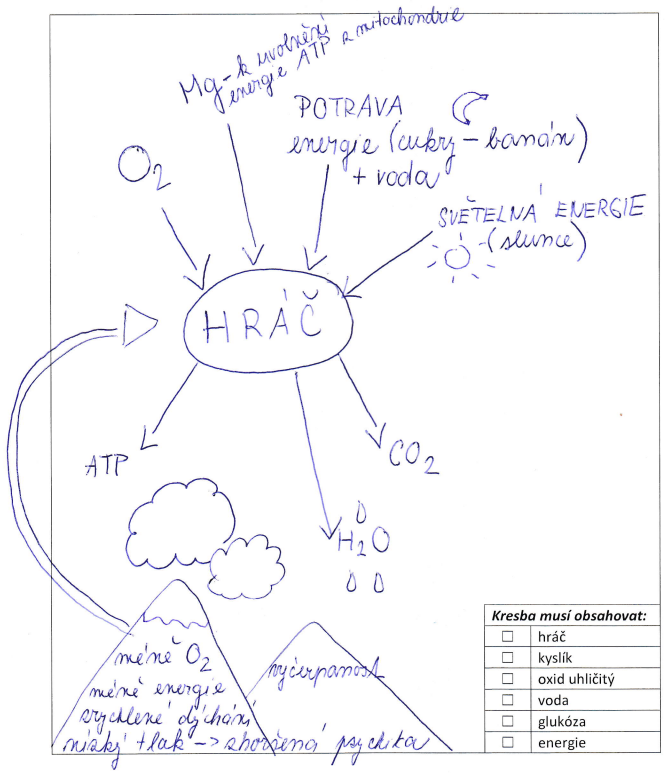 Mg - k uvolnění
energie ATP z mitochondrie
POTRAVA
energie (cukry - banán)
+ voda
O2
SVĚTELNÁ ENERGIE
- (slunce)
HRÁČ
ATP
CO2
H2O
méně O2
méně energie
zrychlené dýchání
nízký tlak -> zhoršená psychika
vyčerpanost
Kresba musí obsahovat:
☐ hráč
☐ kyslík
☐ oxid uhličitý
☐ voda
☐ glukóza
☐ energie